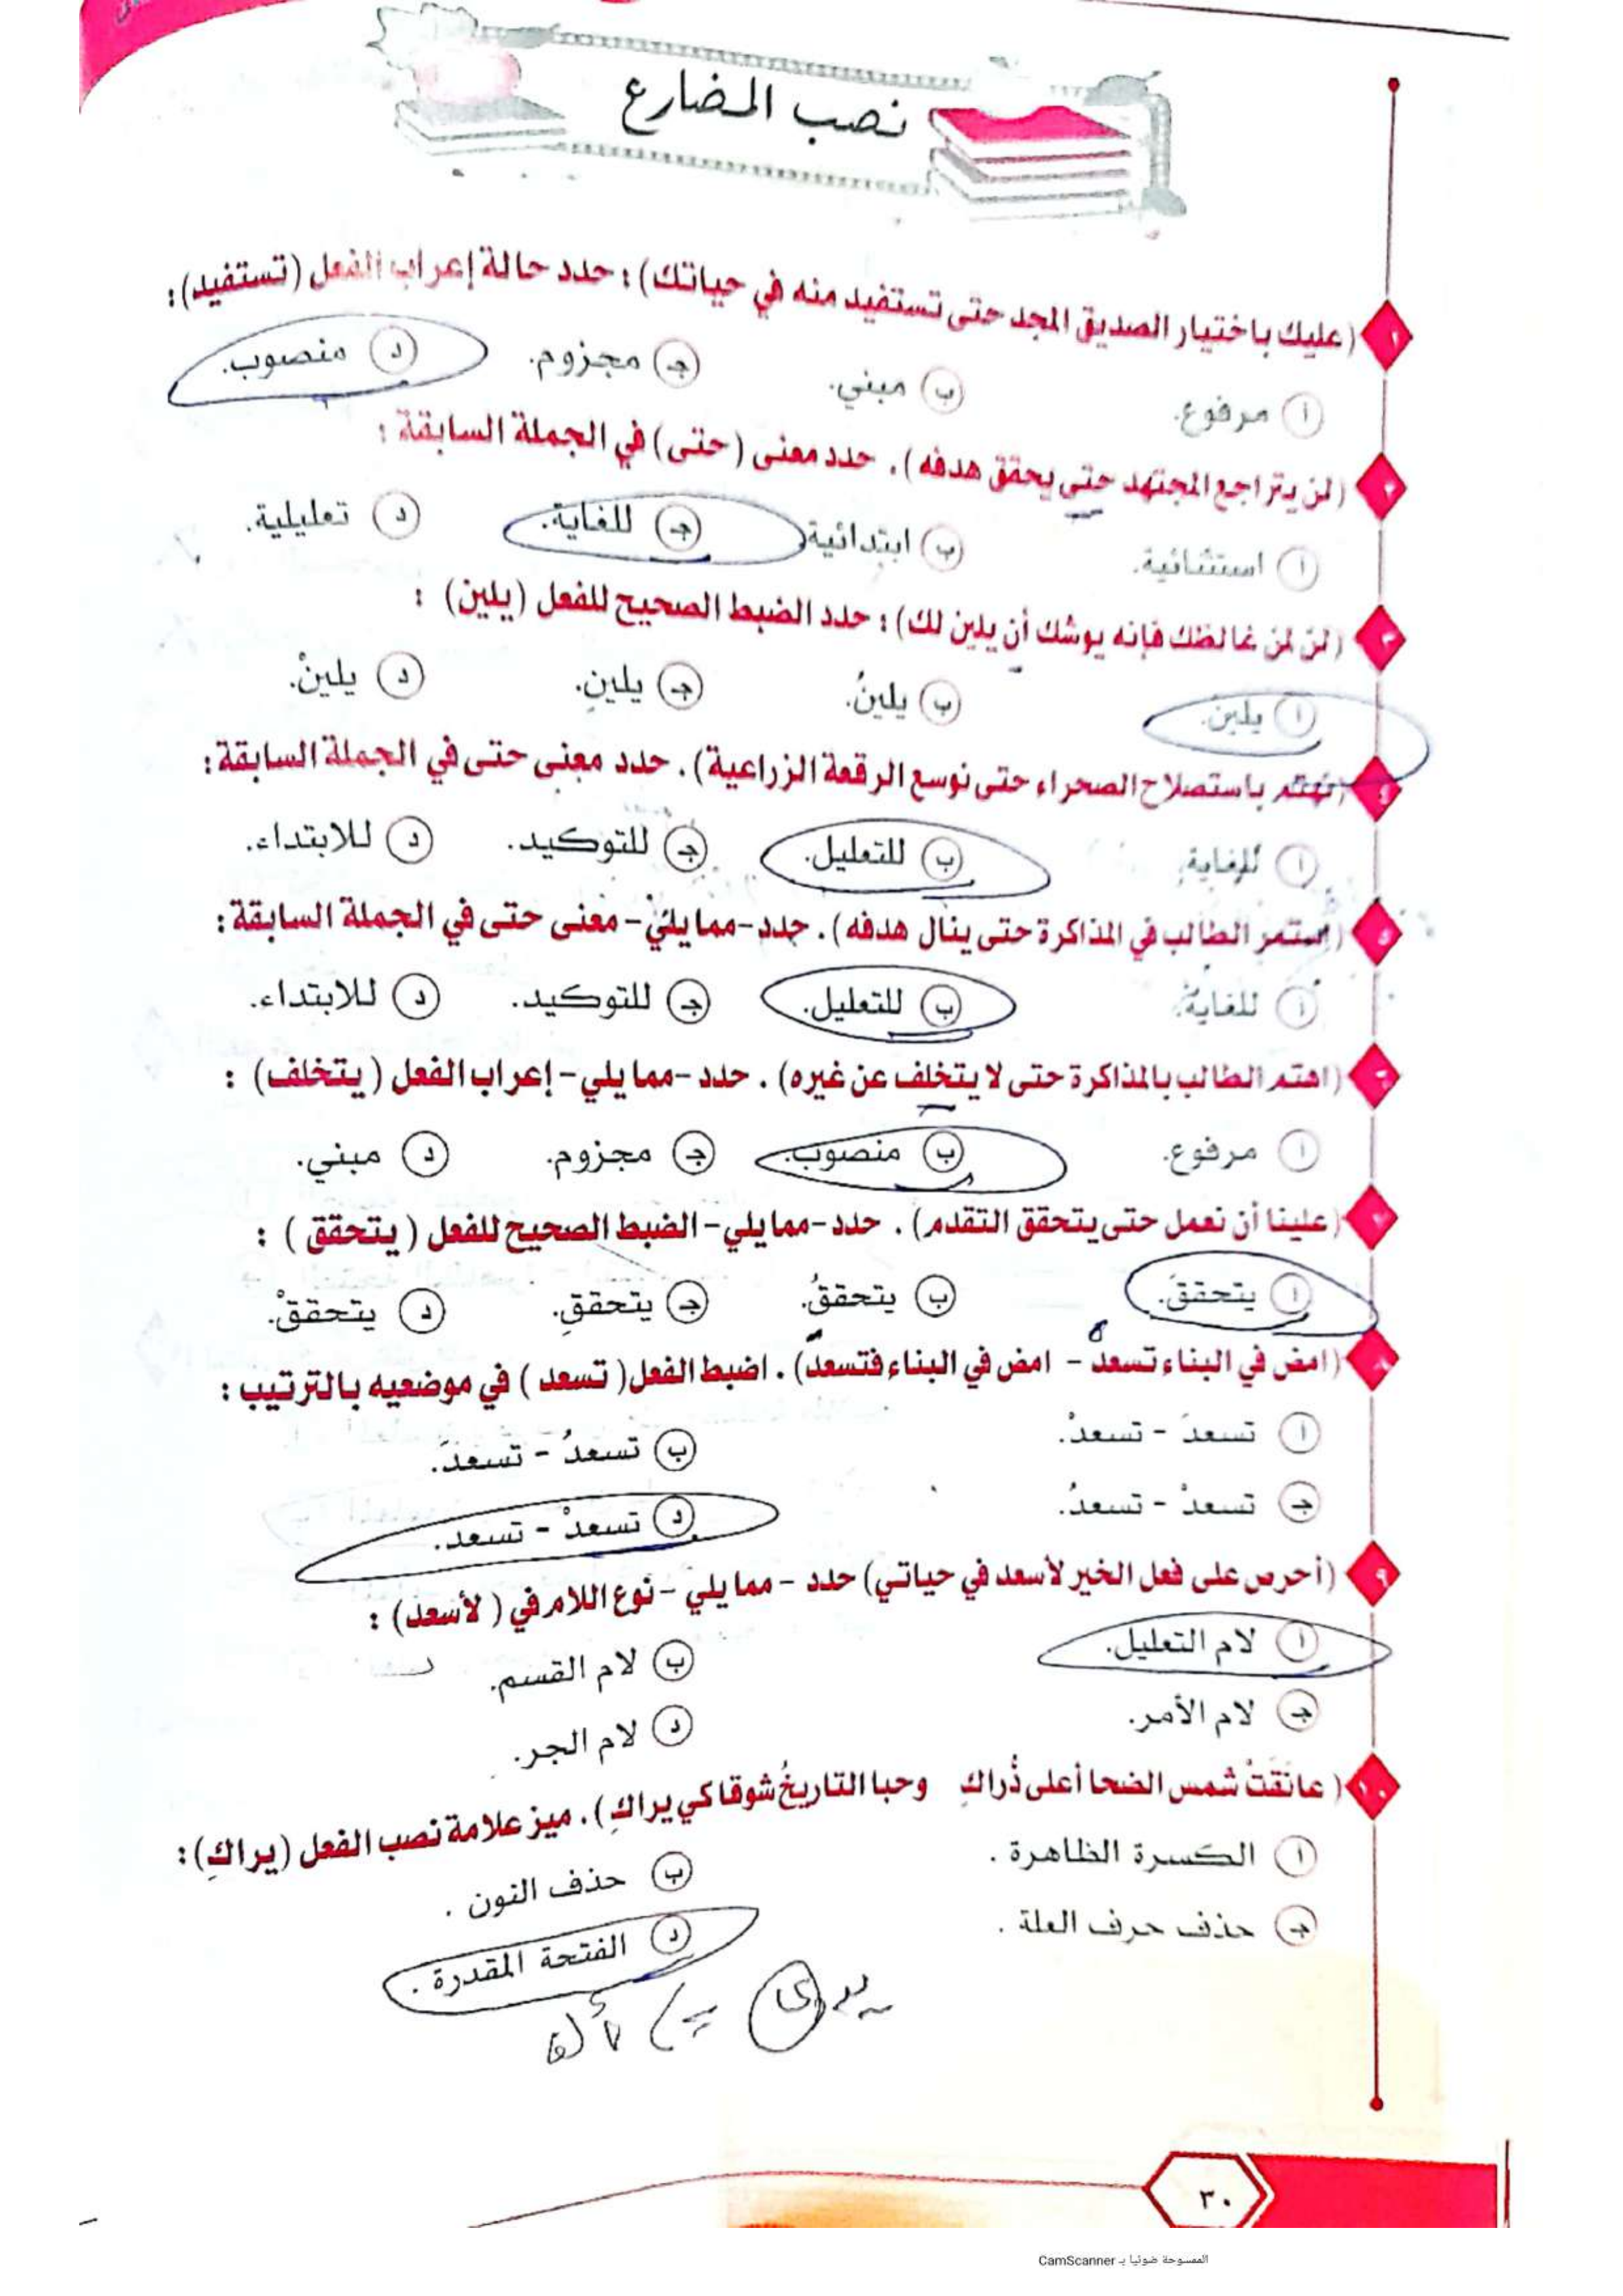 نصب المضارع
١ (عليك باختيار الصديق المجد حتى تستفيد منه في حياتك) : حدد حالة إعراب الفعل (تستفيد) :
أ مرفوع. ب مبني. جـ مجزوم. د منصوب.
٢ (لن يتراجع المجتهد حتى يحقق هدفه). حدد معنى (حتى) في الجملة السابقة :
أ استثنائية. ب ابتدائية جـ للغاية. د تعليلية.
٣ (لن لمن غالظك فإنه يوشك أن يلين لك) : حدد الضبط الصحيح للفعل (يلين) :
أ يلينَ. ب يلينُ. جـ يلينِ. د يلينْ.
٤ (نهتم باستصلاح الصحراء حتى نوسع الرقعة الزراعية). حدد معنى حتى في الجملة السابقة :
أ للغاية. ب للتعليل. جـ للتوكيد. د للابتداء.
٥ (استمر الطالب في المذاكرة حتى ينال هدفه). حدد-مما يلي-معنى حتى في الجملة السابقة :
أ للغاية. ب للتعليل. جـ للتوكيد. د للابتداء.
٦ (اهتم الطالب بالمذاكرة حتى لا يتخلف عن غيره). حدد-مما يلي-إعراب الفعل (يتخلف) :
أ مرفوع. ب منصوب. جـ مجزوم. د مبني.
٧ (علينا أن نعمل حتى يتحقق التقدم). حدد-مما يلي-الضبط الصحيح للفعل (يتحقق) :
أ يتحققَ. ب يتحققُ. جـ يتحققِ. د يتحققْ.
٨ (امض في البناء تسعد - امض في البناء فتسعد). اضبط الفعل (تسعد) في موضعيه بالترتيب :
أ تسعدَ - تسعدْ. ب تسعدُ - تسعدَ.
جـ تسعدْ - تسعدُ. د تسعدْ - تسعدَ.
٩ (أحرص على فعل الخير لأسعد في حياتي) حدد - مما يلي - نوع اللام في (لأسعد) :
أ لام التعليل. ب لام القسم.
جـ لام الأمر. د لام الجر.
١٠ (عانَقَتْ شمس الضحا أعلى ذُراكِ وحبا التاريخُ شوقا كي يراكِ). ميز علامة نصب الفعل (يراكِ) :
أ الكسرة الظاهرة. ب حذف النون.
جـ حذف حرف العلة. د الفتحة المقدرة.
٣٠
الممسوحة ضوئيا بـ CamScanner